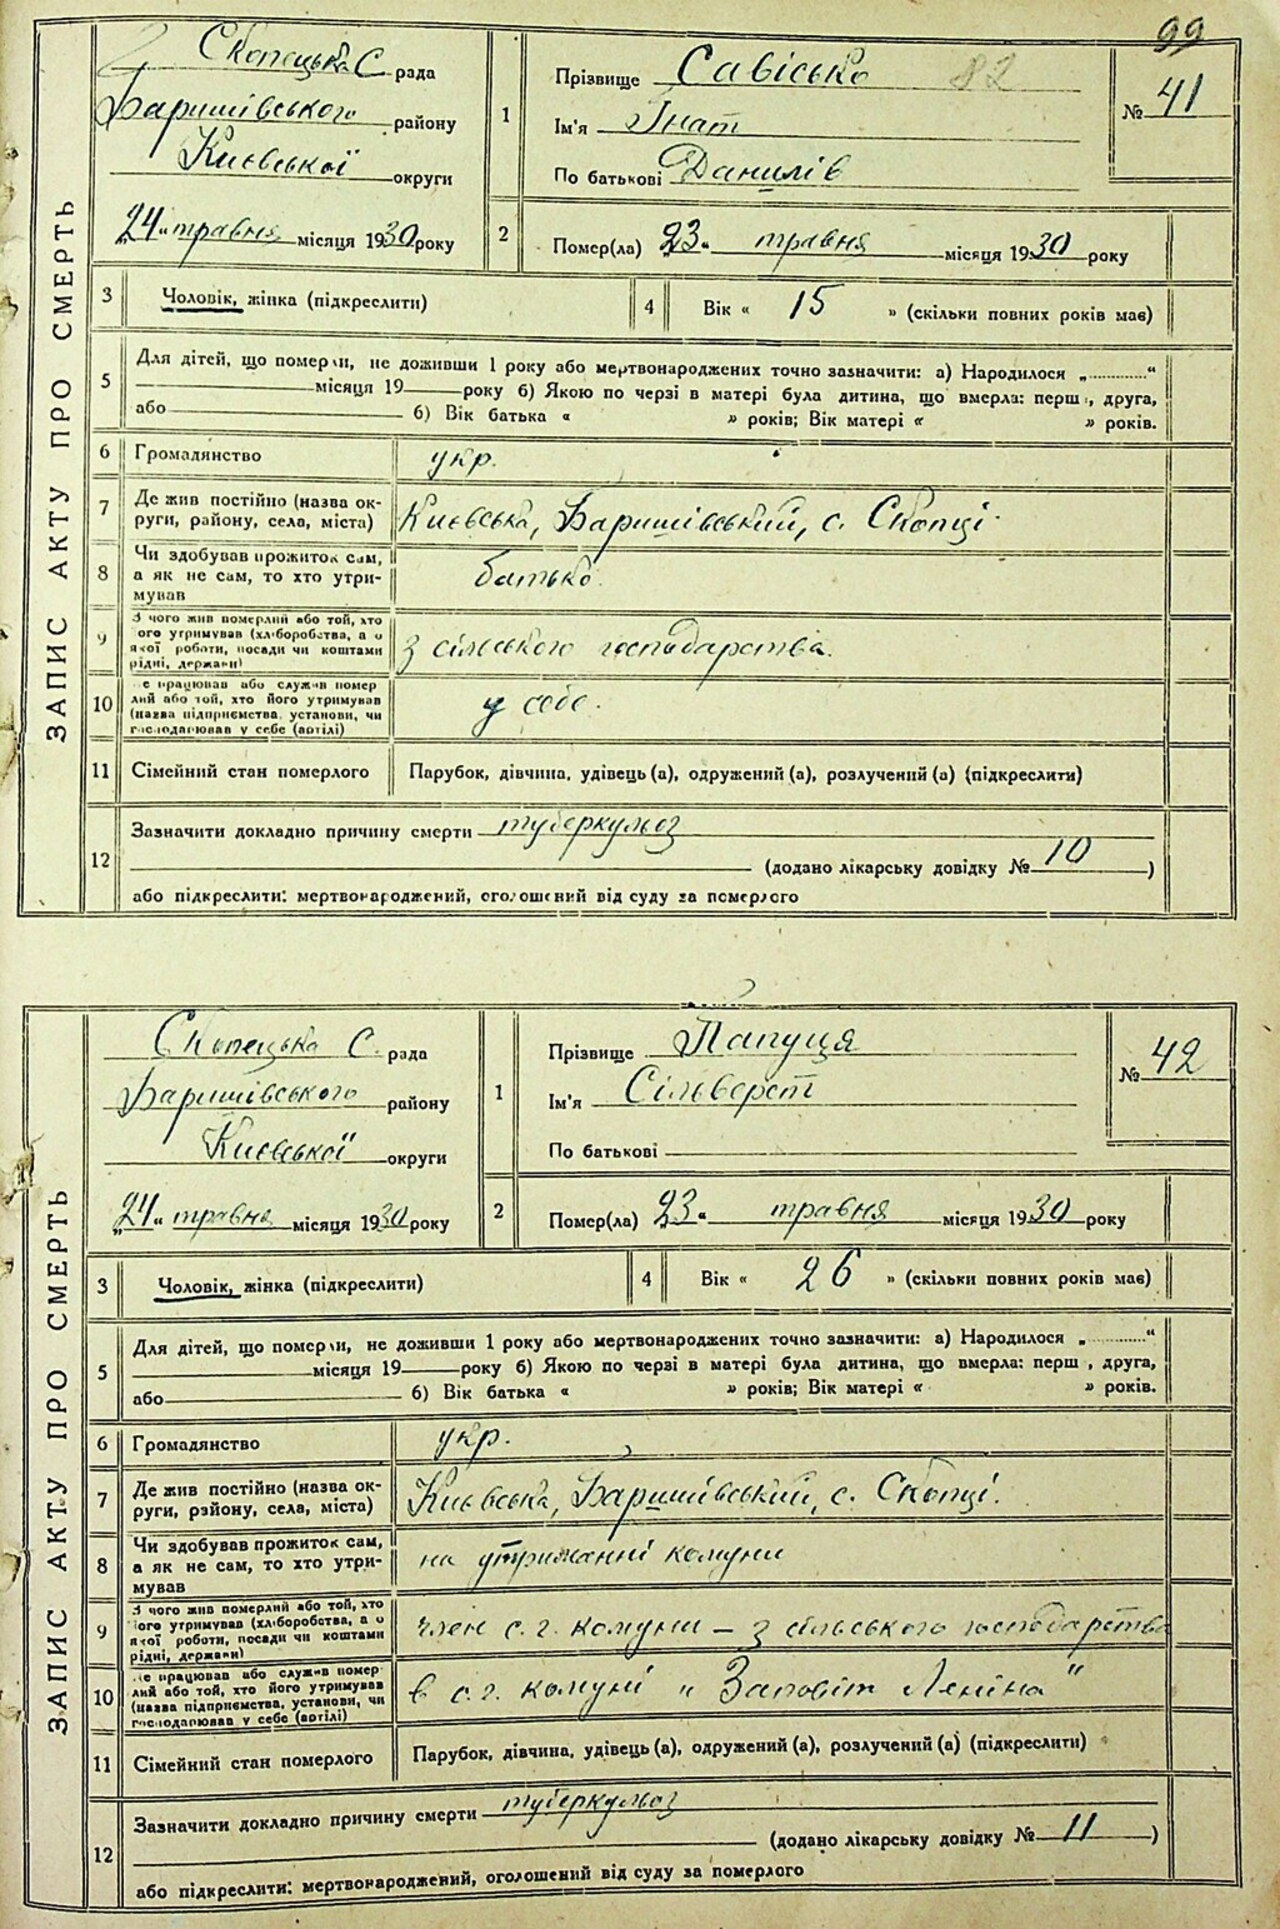 99
ЗАПИС АКТУ ПРО СМЕРТЬ
Скопецька С. рада
Баришівського району
Київської округи
„24“ травня місяця 1930 року
1
Прізвище Савісько 82
Ім'я Гнат
По батькові Данилів
№ 41
2
Помер(ла) „23“ травня місяця 1930 року
3 Чоловік, жінка (підкреслити)
4 Вік « 15 » (скільки повних років має)
5 Для дітей, що померли, не доживши 1 року або мертвонароджених точно зазначити: а) Народилося „............“
місяця 19 року б) Якою по черзі в матері була дитина, що вмерла: перш , друга,
або б) Вік батька « » років; Вік матері « » років.
6 Громадянство укр.
7 Де жив постійно (назва ок-
руги, району, села, міста) Київська, Баришівський, с. Скопці.
8 Чи здобував прожиток сам,
а як не сам, то хто утри-
мував батько.
9 З чого жив померлий або той, хто
ого утримував (хліборобства, а о
якої роботи, посади чи коштами
рідні, держави) з сільського господарства.
10 е працював або служив помер
лий або той, хто його утримував
(назва підприємства, установи, чи
господарював у себе (артілі) у себе.
11 Сімейний стан померлого Парубок, дівчина, удівець (а), одружений (а), розлучений (а) (підкреслити)
12 Зазначити докладно причину смерти туберкульоз
(додано лікарську довідку № 10 )
або підкреслити: мертвонароджений, оголошений від суду за померлого
ЗАПИС АКТУ ПРО СМЕРТЬ
Скопецька С. рада
Баришівського району
Київської округи
„24“ травня місяця 1930 року
1
Прізвище Папуця
Ім'я Сільверст
По батькові
№ 42
2
Помер(ла) „23“ травня місяця 1930 року
3 Чоловік, жінка (підкреслити)
4 Вік « 26 » (скільки повних років має)
5 Для дітей, що померли, не доживши 1 року або мертвонароджених точно зазначити: а) Народилося „............“
місяця 19 року б) Якою по черзі в матері була дитина, що вмерла: перш , друга,
або б) Вік батька « » років; Вік матері « » років.
6 Громадянство укр.
7 Де жив постійно (назва ок-
руги, району, села, міста) Київська, Баришівський, с. Скопці.
8 Чи здобував прожиток сам,
а як не сам, то хто утри-
мував на утриманні комуни
9 З чого жив померлий або той, хто
його утримував (хліборобства, а о
якої роботи, посади чи коштами
рідні, держави) член с. г. комуни – з сільського господарства
10 е працював або служив помер
лий або той, хто його утримував
(назва підприємства, установи, чи
господарював у себе (артілі) в с. г. комуні „Заповіт Леніна"
11 Сімейний стан померлого Парубок, дівчина, удівець (а), одружений (а), розлучений (а) (підкреслити)
12 Зазначити докладно причину смерти туберкульоз
(додано лікарську довідку № 11 )
або підкреслити: мертвонароджений, оголошений від суду за померлого